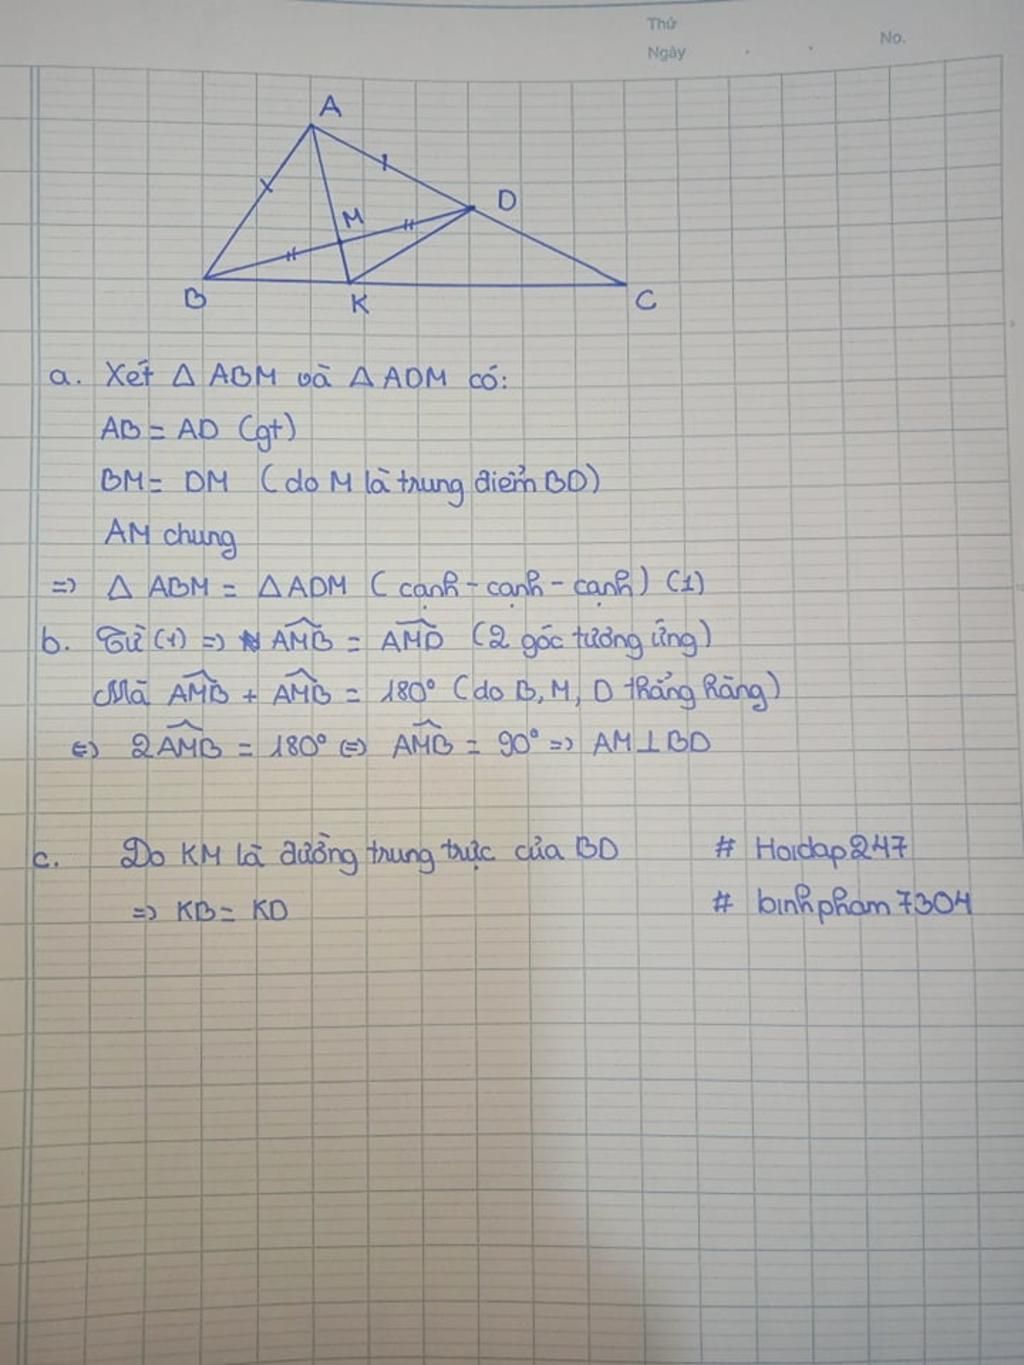 Thứ
Ngày
No.
A
D
M
B
K
C
a. Xét △ ABM và △ ADM có:
AB = AD (gt)
BM = DM (do M là trung điểm BD)
AM chung
=> △ ABM = △ ADM (cạnh - cạnh - cạnh) (1)
b. Từ (1) => AMB = AMD (2 góc tương ứng)
Mà AMB + AMB = 180° (do B, M, D thẳng hàng)
<=> 2AMB = 180° <=> AMB = 90° => AM ⊥ BD
c. Do KM là đường trung trực của BD # Hoidap247
=> KB = KD # binhpham7304